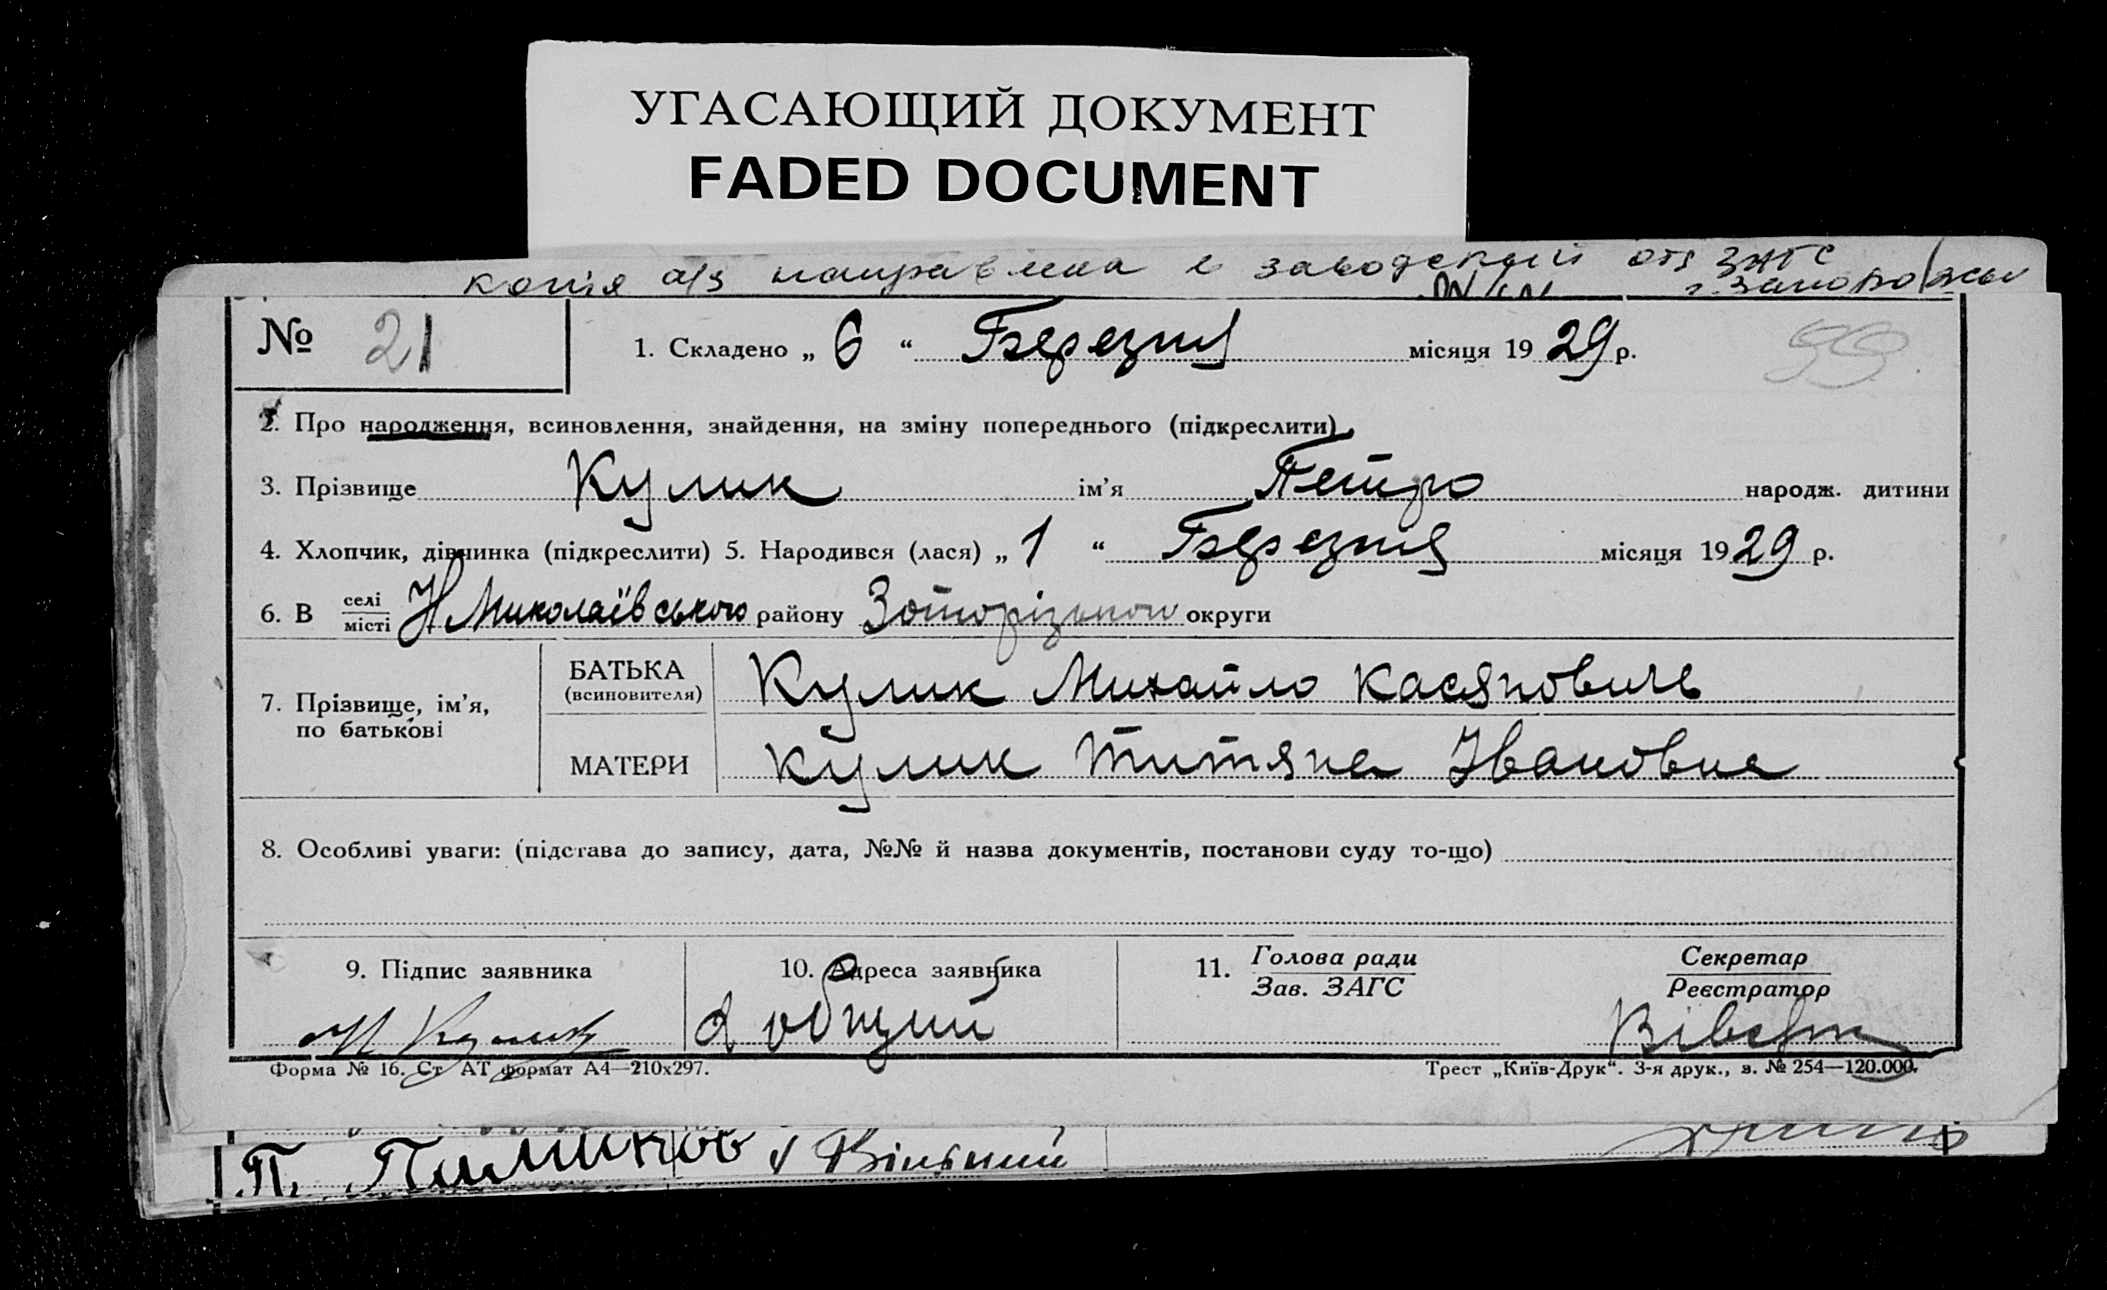 УГАСАЮЩИЙ ДОКУМЕНТ
FADED DOCUMENT
копія а/з направлена в заводский отд ЗАГС
г. Запорожья
№ 21 1. Складено „ 6 “ Березня місяця 1929 р. 99
2. Про народження, всиновлення, знайдення, на зміну попереднього (підкреслити)
3. Прізвище Кулик ім’я Петро народж. дитини
4. Хлопчик, дівчинка (підкреслити) 5. Народився (лася) „ 1 “ Березня місяця 1929 р.
6. В селі місті Н Миколаївського району округи
7. Прізвище, ім’я, по батькові
БАТЬКА (всиновителя) Кулик Михайло Касянович
МАТЕРИ Кулик Титяна Івановна
8. Особливі уваги: (підстава до запису, дата, №№ й назва документів, постанови суду то-що)
9. Підпис заявника 10. Адреса заявника 11. Голова ради Зав. ЗАГС Секретар Реєстратор
Кулик
Форма № 16. Ст АТ формат А4—210х297. Трест „Київ-Друк“. 3-я друк., з. № 254—120.000.
П.